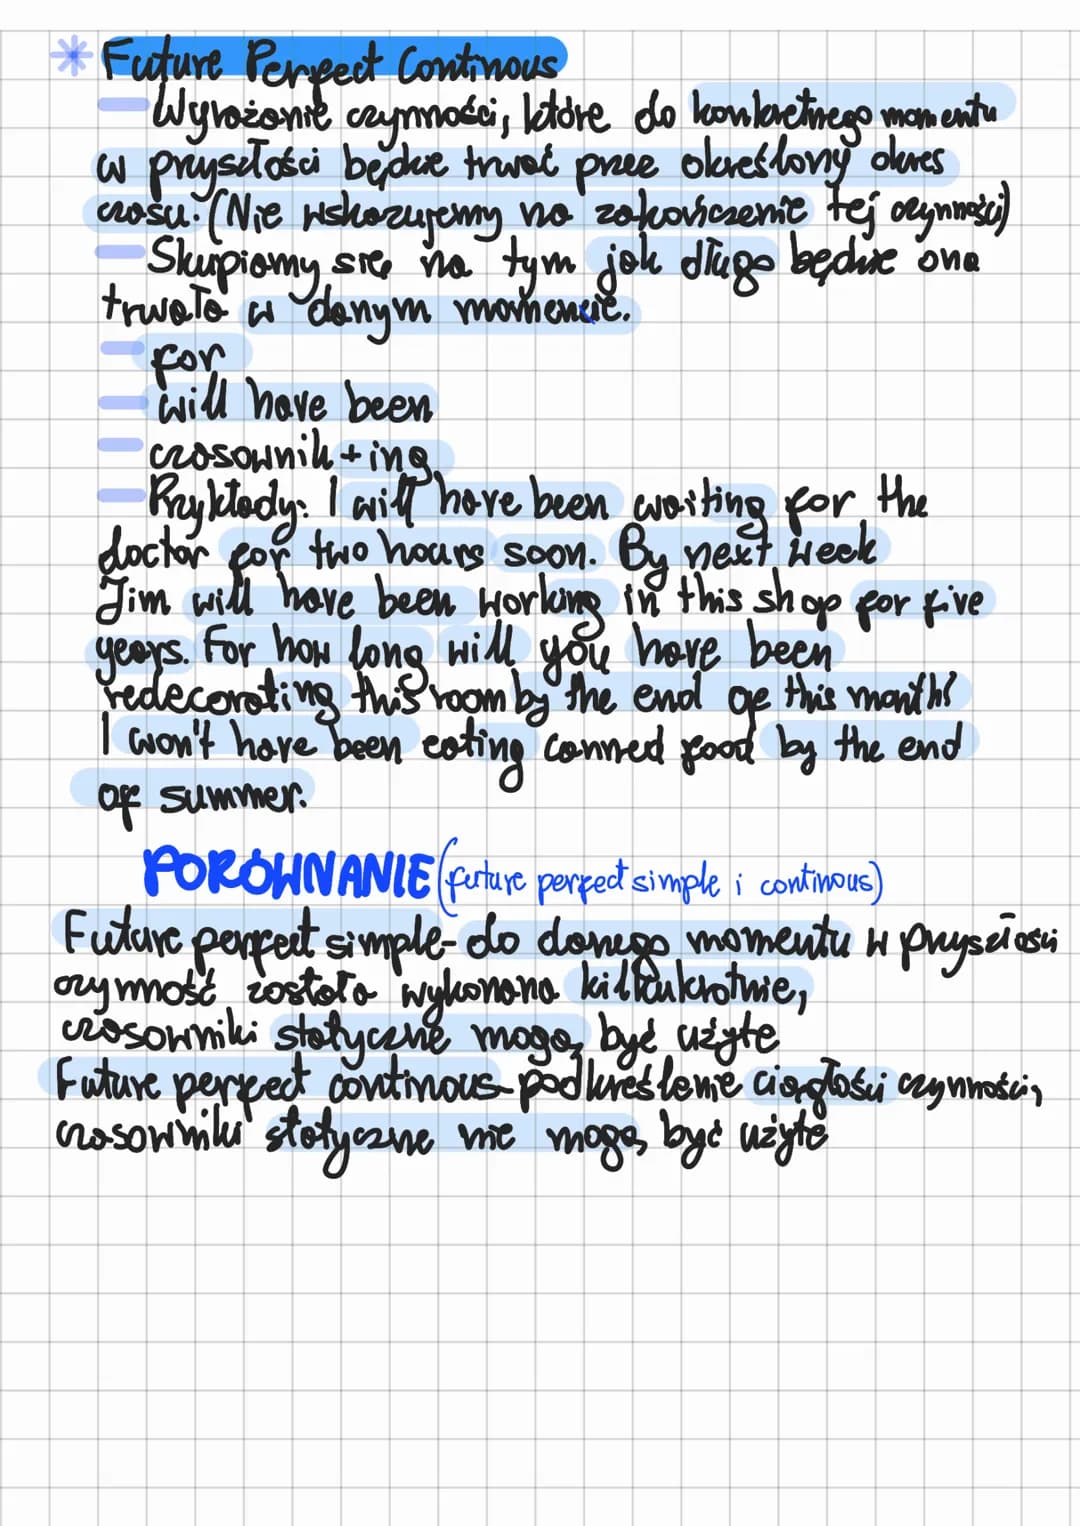 * Future Perfect Continous
Wyrażanie czynności, które do konkretnego momentu
w przyszłości będzie trwać przez określony okres
czasu. (Nie wskazujemy na zakończenie tej czynności)
Skupiamy się na tym jak długo będzie ona
trwała w danym momencie.
for
will have been
czasownik + ing
Przykłady: I will have been waiting for the
doctor for two hours soon. By next week
Jim will have been working in this shop for five
years. For how long will you have been
redecorating this room by the end of this month?
I won't have been eating canned food by the end
of summer.
PORÓWNANIE (future perfect simple i continous)
Future perfect simple - do danego momentu w przyszłości
czynność została wykonana kilkukrotnie,
czasowniki statyczne mogą być użyte
Future perfect continous - podkreślenie ciągłości czynności,
czasowniki statyczne nie mogą być użyte